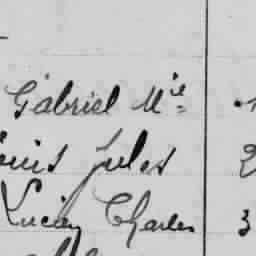 Gabriel Mie
ouis Jules 2
Lucien Charles 3